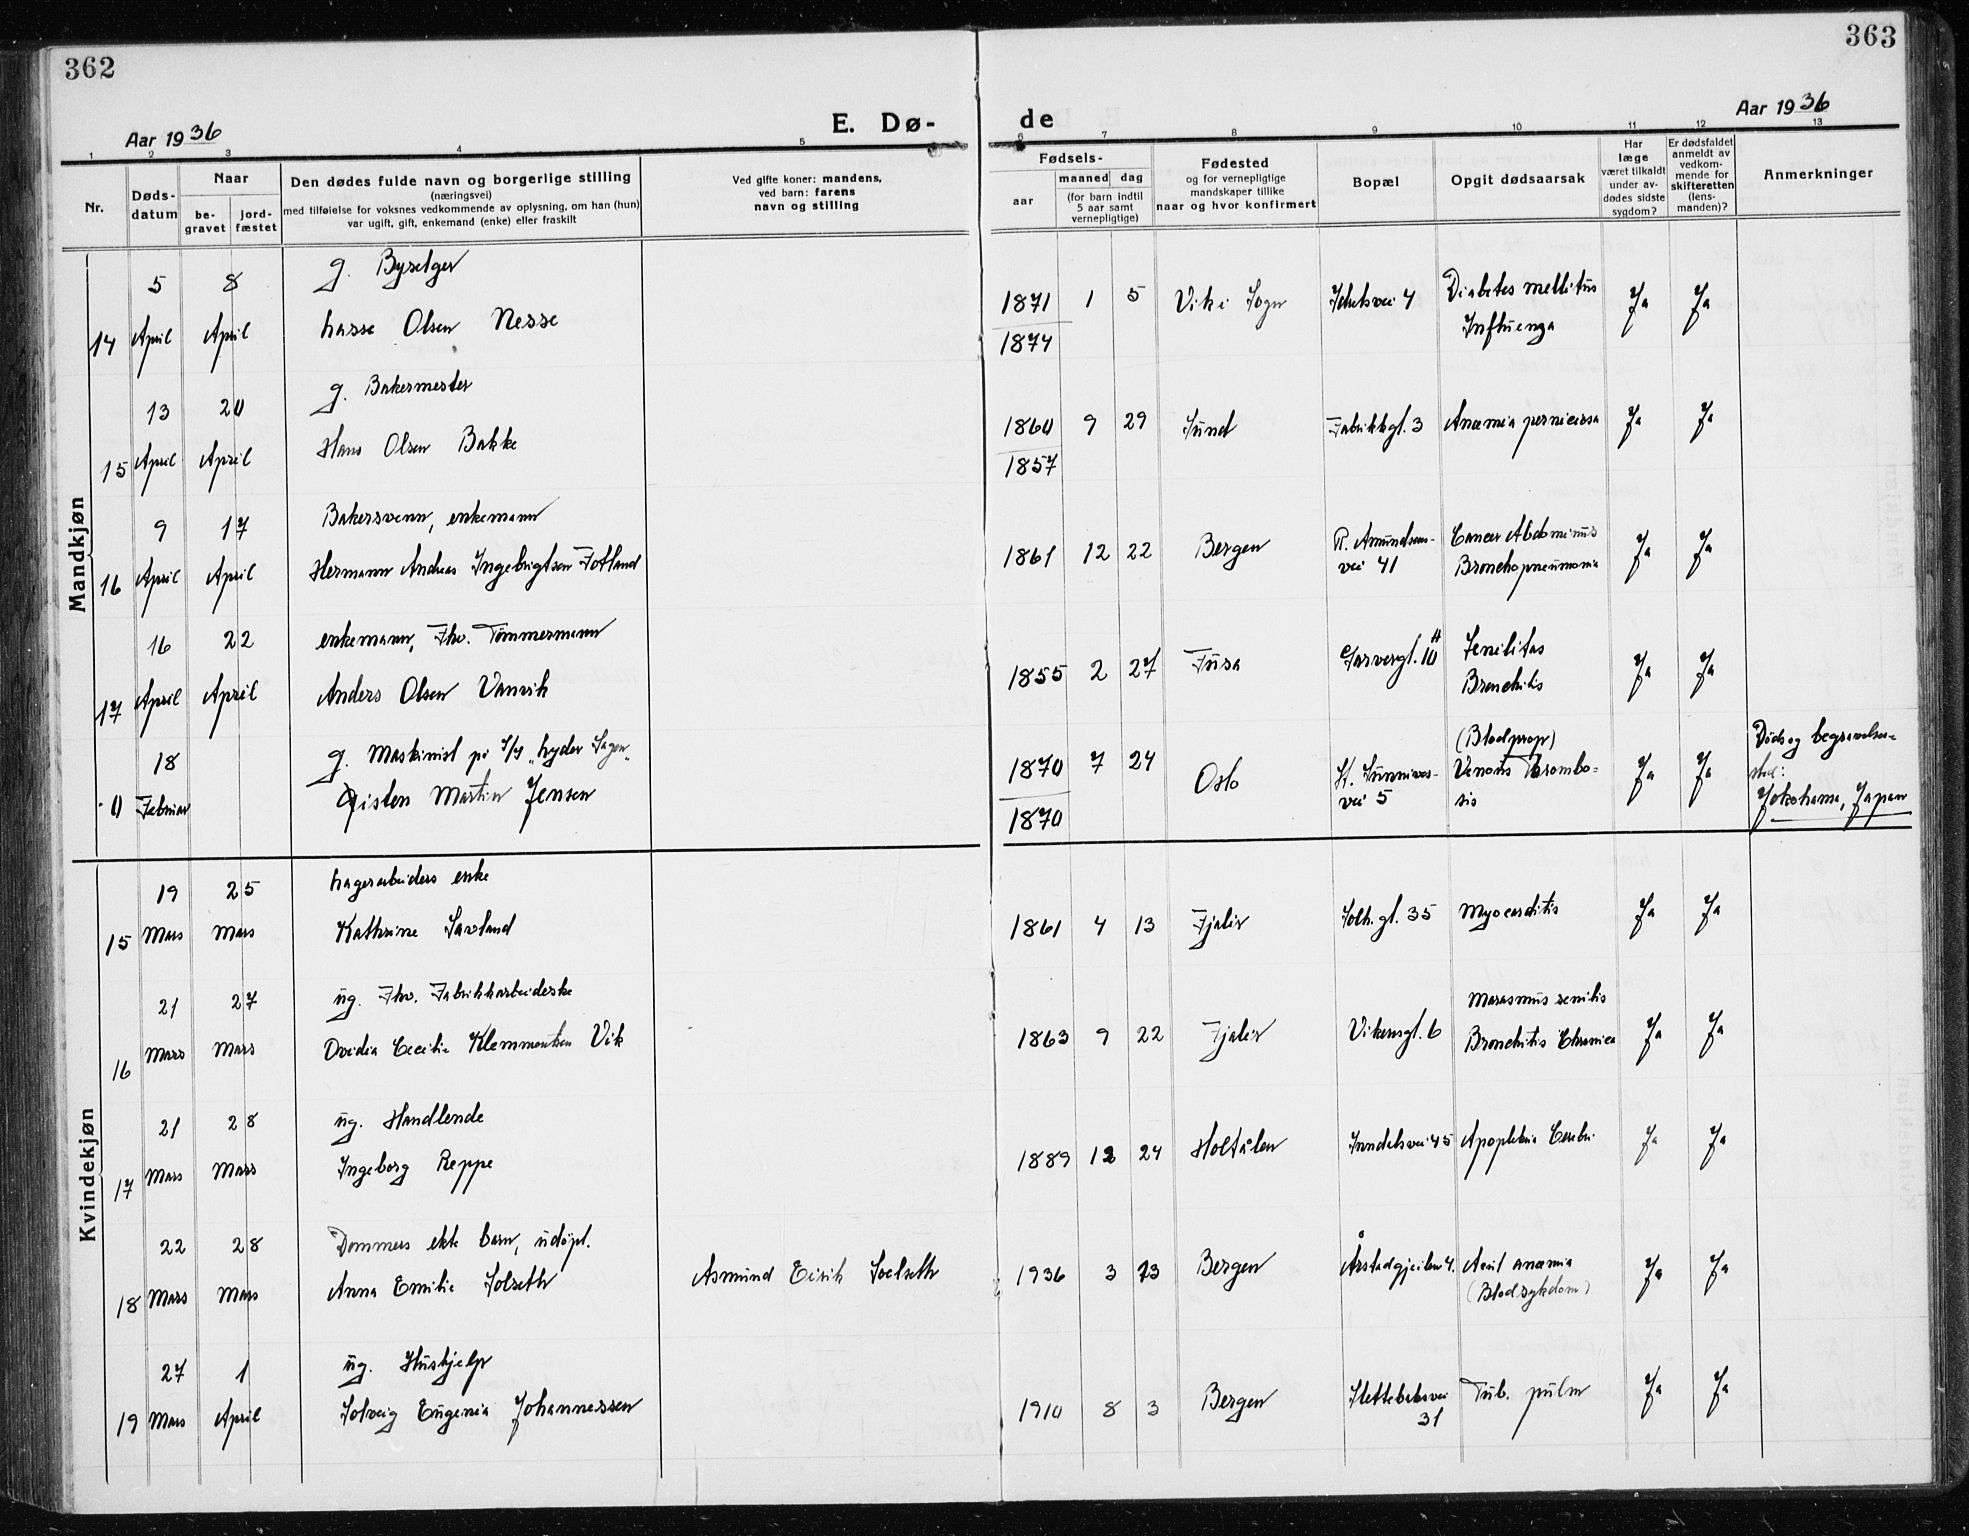 362
363
Aar 1936
E. Dø-
de
Aar 1936
1 2 3 4 5 6 7 8 9 10 11 12 13
Nr.
Døds-
datum
Naar
be-
gravet
jord-
fæstet
Den dødes fulde navn og borgerlige stilling
(næringsvei)
med tilføielse for voksnes vedkommende av oplysning, om han (hun)
var ugift, gift, enkemand (enke) eller fraskilt
Ved gifte koner: mandens,
ved barn: farens
navn og stilling
Fødsels-
aar
maaned dag
(for barn indtil
5 aar samt
vernepligtige)
Fødested
og for vernepligtige
mandskaper tillike
naar og hvor konfirmert
Bopæl
Opgit dødsaarsak
Har
læge
været tilkaldt
under av-
dødes sidste
sygdom?
Er dødsfaldet
anmeldt av
vedkom-
mende for
skifteretten
(lens-
manden)?
Anmerkninger
Mandkjøn
g. Byselger
5 8
14 April April Lasse Olsen Nesse
1871 1 5 Vik i Sogn
1874
Diabetes mellitus
Influenza
Ja Ja
g. Bakermester
13 20
15 April April Hans Olsen Bakke
1860 9 29 Sund Fabrikkgt. 3 Anæmia perniciosa Ja Ja
1857
Bakersvenn, enkemann
9 17
16 April April Hermann Andreas Ingebrigtsen Fotland
1861 12 22 Bergen
R. Amundsens-
vei 41
Cancer Abdominus
Bronchopneumonia
Ja Ja
enkemann, Fhv. Tømmermann
16 22
17 April April Anders Olsen Vanvik
1855 2 27 Fusa Garvergt. 10 A
Senilitas
Bronchitis
Ja Ja
g. Maskinist på S/S "Lyder Sagen"
18
0 Februar Kristen Martin Jensen
1870 7 24 Oslo
1870
St. Sunnivas-
vei 5
(Blodprop)
Venous Thrombo-
sis
Ja Ja
Døds og begravelses-
sted:
Yokohama, Japan
Kvindekjøn
Lagerarbeiders enke
19 25
15 Mars Mars Kathrine Savland
1861 4 13 Fjaler Solh. gt. 35 Myocarditis Ja Ja
ug. Fhv. Fabrikkarbeiderske
21 27
16 Mars Mars Ovidia Cecilie Klemmentsen Vik
1863 9 22 Fjaler Vikensgt. 6
Marasmus senilis
Bronchitis Chronica
Ja Ja
ug. Handlende
21 28
17 Mars Mars Ingeborg Reppe
1889 12 24 Holtålen 45 Apopleksia Cerebri Ja Ja
Dommers ekte barn, udøpt.
22 28
18 Mars Mars Anna Emilie Solseth
Asmund Eirik Soelseth
1936 3 13 Bergen Årstadgjeilen 4.
Acut anæmia
(Blodsykdom)
Ja Ja
ug. Hushjelp
27 1
19 Mars April Solveig Eugenia Johannessen
1910 8 3 Bergen
Slettebakvei
31
Tub. pulm
Ja Ja